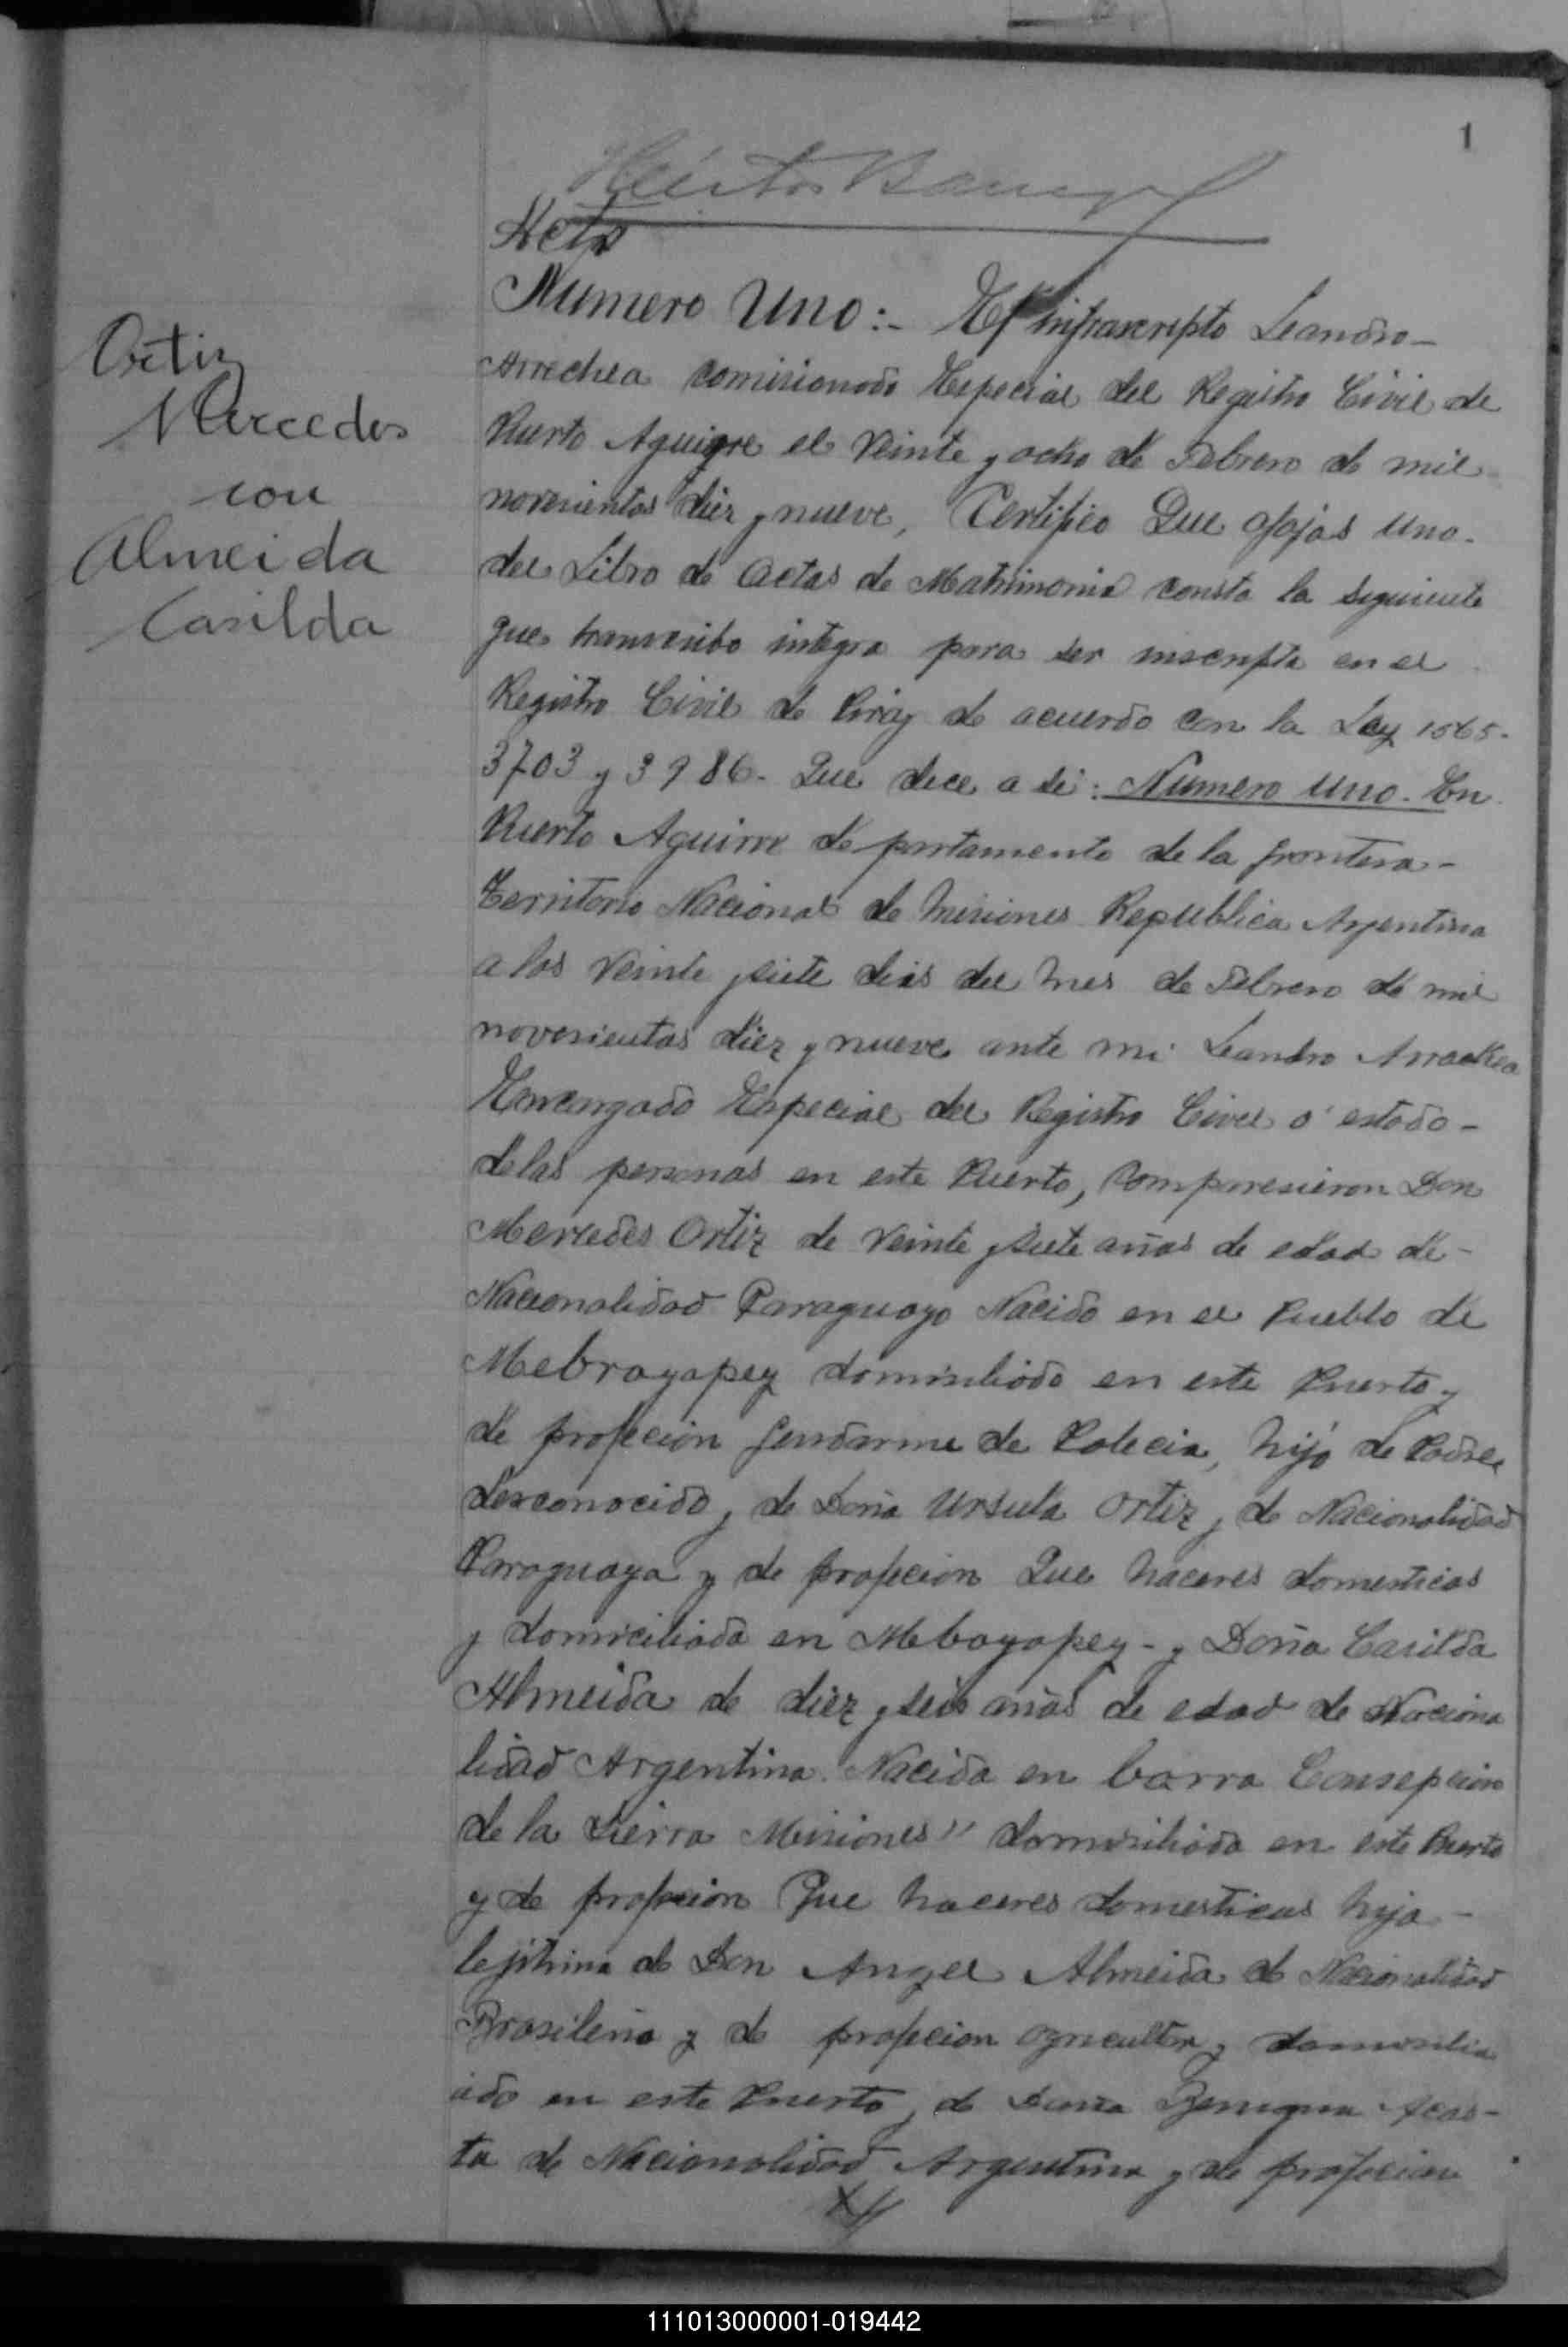 1
Acta
Ortiz
Mercedes
con
Almeida
Casilda
Numero Uno:- El infrascripto Leandro-
Arrechea comisionado Especial del Registro Civil de
Puerto Aguirre el Veinte y ocho de Febrero de mil
novesientos diez y nueve, Certifico Que afojas uno-
del Libro de Actas de Matrimonio consta la siguiente
que transcribo integra para ser inscripta en el
Registro Civil de Piray de acuerdo con la Ley 1565-
3703 y 3986- Que dice a si: Numero uno. En
Puerto Aguirre departamento de la frontera-
Territorio Nacional de Misiones Republica Argentina
a los Veinte y siete dias del mes de Febrero de mil
novesientos diez y nueve ante mi Leandro Arrechea
Encargado Especial del Registro Civil o' estado-
delas personas en este Puerto, Comparesieron Don
Mercedes Ortiz de Veinte y siete años de edad de-
Nacionalidad Paraguayo Nacido en el Pueblo de
Mebrayapey domisiliado en este Puerto y
de profecion Gendarme de Policia, hijo de Padre
desconocido y de Doña Ursula Ortiz y de Nacionalidad
Paraguaya y de profecion Que haceres domesticos
y domiciliada en Mebayapey- y Doña Casilda
Almeida de diez y seis años de edad de Naciona
lidad Argentina. Nacida en barra Consepcion
de la Sierra Misiones" domisiliada en este Puerto
y de profecion Que haceres domesticos hija-
lejitima de Don Angel Almeida de Nacionalidad
Brasileño y de profecion agricultor y domisilia
ado en este Puerto y de Doña Benigna Acos-
ta de Nacionalidad Argentina y de profecion
111013000001-019442